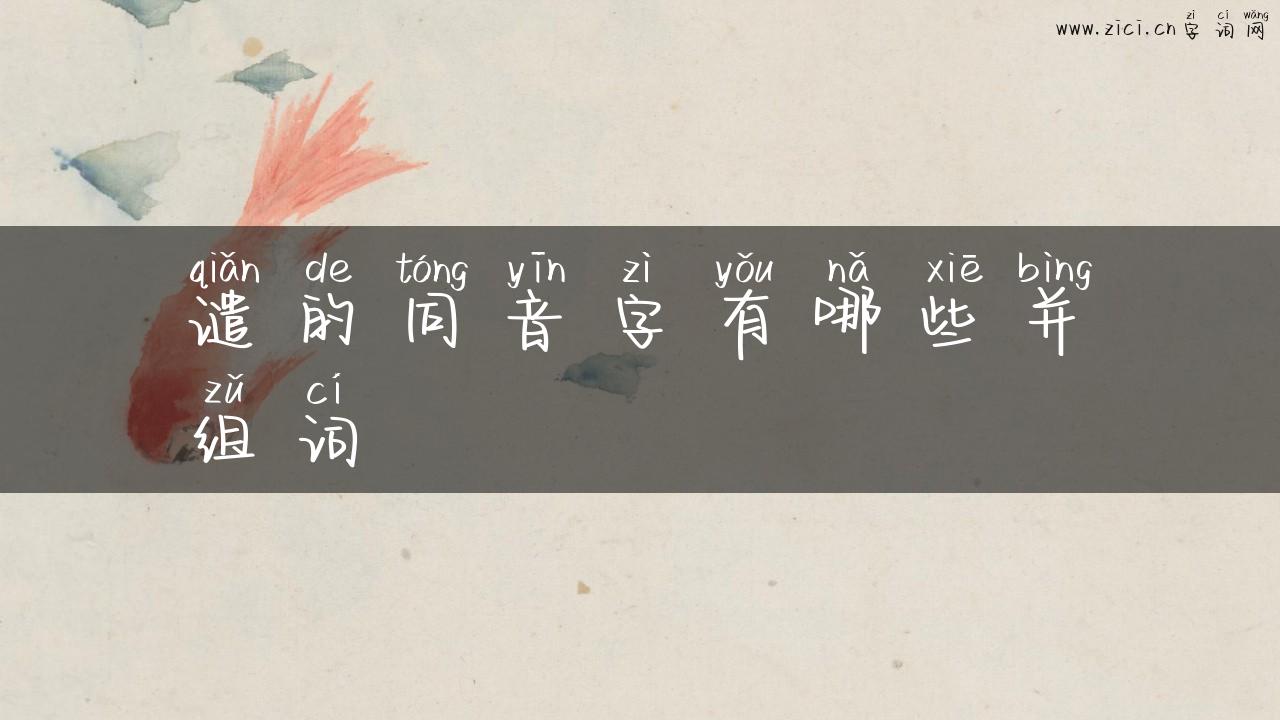 zì cí wǎng
www.zici.cn 字 词 网
qiǎn de tóng yīn zì yǒu nǎ xiē bìng
谴 的 同 音 字 有 哪 些 并
zǔ cí
组 词